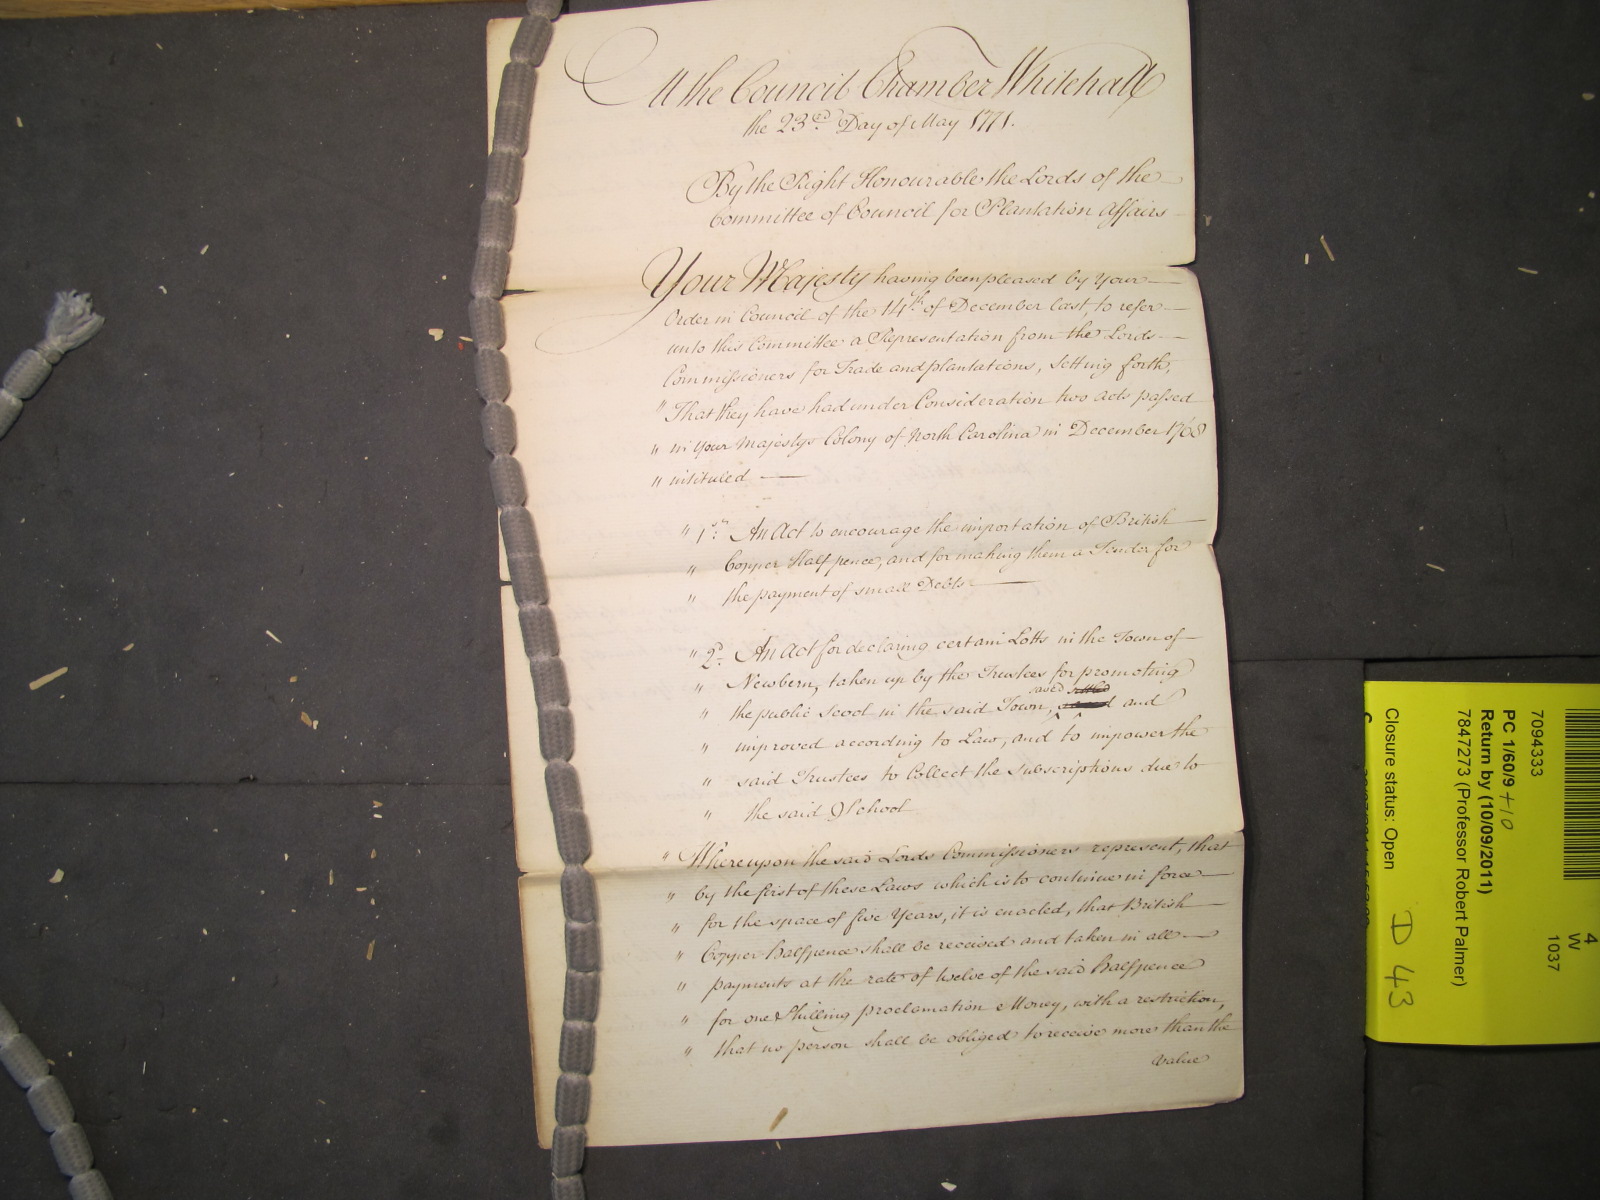 At the Council Chamber Whitehall
the 23d. Day of May 1771.
By the Right Honourable the Lords of the
Committee of Council for Plantation Affairs
Your Majesty having been pleased by Your
Order in Council of the 14th. of December last, to refer
unto this Committee a Representation from the Lords
Commissioners for Trade and plantations, setting forth,
" That they have had under Consideration two acts passed
" in your Majestys Colony of North Carolina in December 1768
" intituled
" 1st. An Act to encourage the importation of British
" Copper Half pence, and for making them a Tender for
" the payment of small Debts
" 2d. An Act for declaring certain Lotts in the Town of
" Newbern, taken up by the Trustees for promoting
saved
" the public Scool in the said Town, and
" improved according to Law, and to impower the
" said Trustees to Collect the subscriptions due to
" the said School
" Whereupon the said Lords Commissioners represent, that
" by the first of these Laws which is to continue in force
" for the space of five Years, it is enacted, that British
" Copper Halfpence shall be received and taken in all
" payments at the rate of twelve of the said halfpence
" for one Shilling proclamation Money, with a restriction,
" that no person shall be obliged to receive more than the
value
7094333
PC 1/60/9 +10
Return by (10/09/2011)
7847273 (Professor Robert Palmer)
Closure status: Open
4
W
1037
D 43